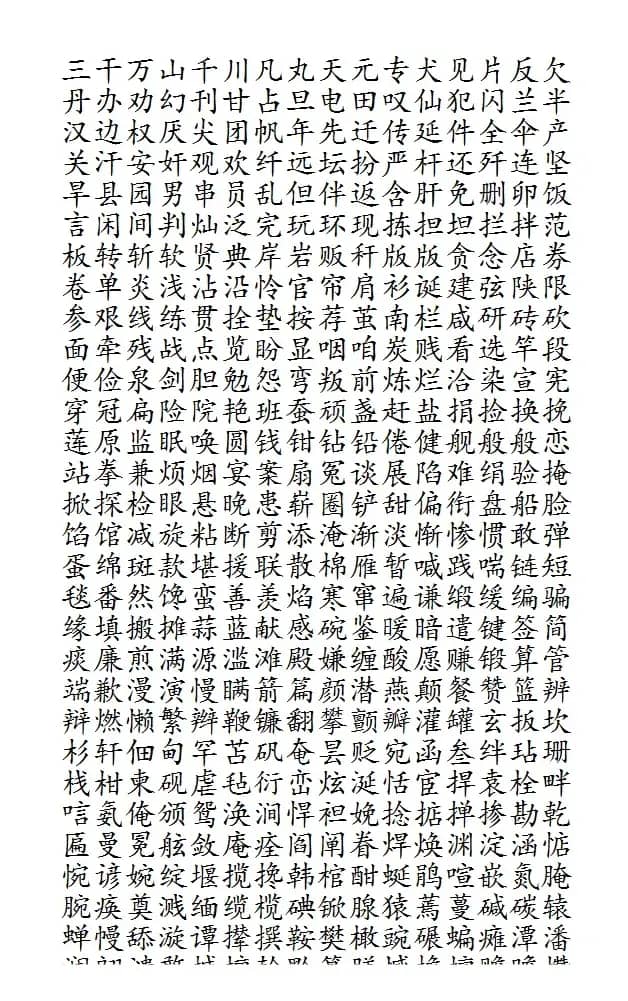 三干万山千川凡丸天元专犬见片反欠
丹办劝幻刊甘占旦电田叹仙犯闪兰半
汉边权厌尖团帆年先迁传延件全伞产
关汗安奸观欢纤远坛扮严杆还歼连坚
旱县园男串员乱但伴返含肝免删卵饭
言闲间判灿泛完玩环现拣担坦拦拌范
板转斩软贤典岸岩贩秆版版贪念店券
卷单炎浅沾沿怜官帘肩衫诞建弦陕限
参艰线练贯拴垫按荐茧南栏咸研砖砍
面牵残战点览盼显咽咱炭贱看选竿段
便俭泉剑胆勉怨弯叛前炼烂洽染宣宪
穿冠扁险院艳班蚕顽盏赶盐捐捡换挽
莲原监眠唤圆钱钳钻铅倦健舰般般恋
站拳兼烦烟宴案扇冤谈展陷难绢验掩
掀探检眼悬晚患崭圈铲甜偏衔盘船脸
馅馆减旋粘断剪添淹渐淡惭惨惯敢弹
蛋绵斑款堪援联散棉雁暂喊践喘链短
毯番然馋蛮善羡焰寒窜遍谦缎缓编骗
缘填搬摊蒜蓝献感碗鉴暖暗遣键签简
痰廉煎满源滥滩殿嫌缠酸愿赚锻算管
端歉漫演慢瞒箭篇颜潜燕颠餐赞篮辨
辩燃懒繁辫鞭镰翻攀颤瓣灌罐玄扳坎
杉轩佃甸罕苫矾奄昙贬宛函叁绊玷珊
栈柑柬砚虐毡衍峦炫涎恬宦捍袁栓畔
唁氨俺颁鸳涣涧悍袒娩捻掂掸掺勘乾
匾曼冕舷敛庵痊阎阐眷焊焕渊淀涵惦
惋谚婉绽堰揽搀韩棺酣蜒鹃喧嵌氮腌
腕痪奠溅缅缆榄碘锨腺猿蔫蔓碱碳辕
蝉幔舔漩谭撵撰鞍樊橄豌碾蝙瘫潭潘